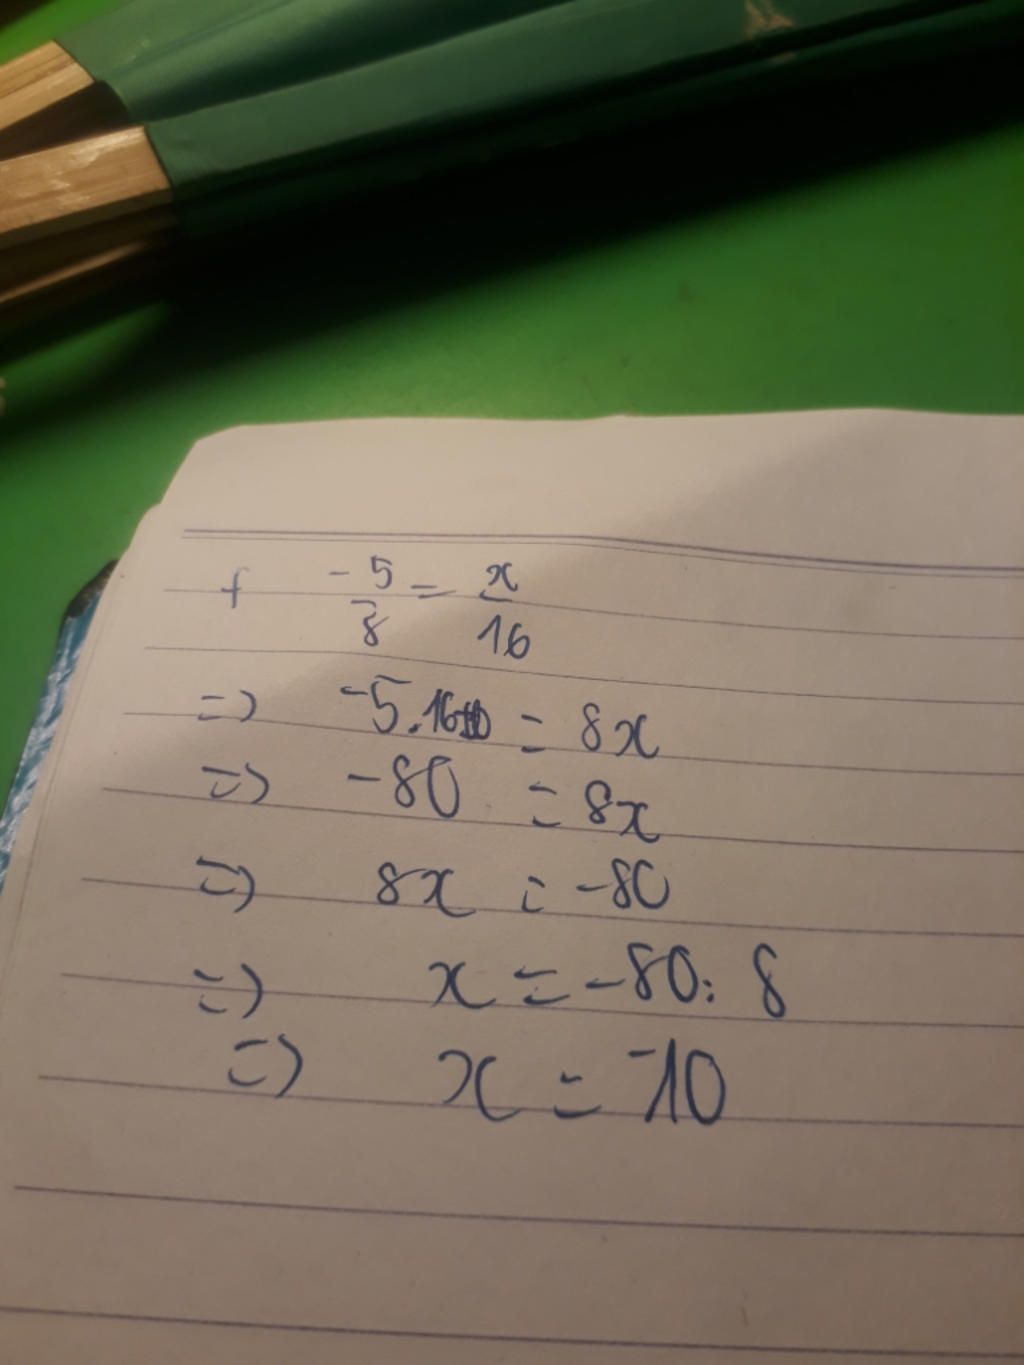 f -5/8 = x/16
=> -5.16 = 8x
=> -80 = 8x
=> 8x = -80
=> x = -80 : 8
=> x = -10